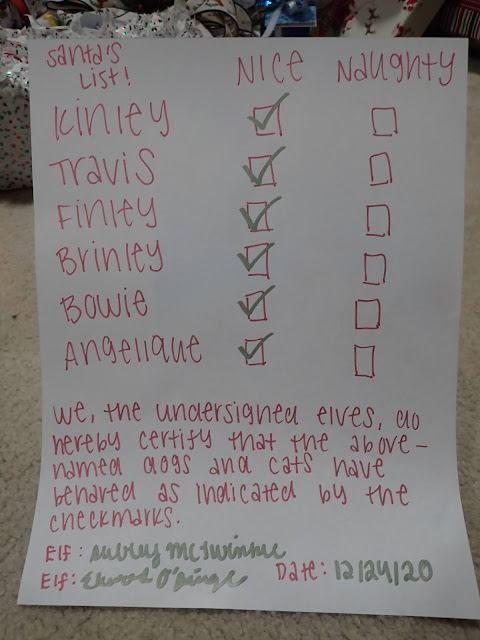 Santa's Nice Naughty
List!
Kinley
Travis
Finley
Brinley
Bowie
Angelique
We, the undersigned elves, do
hereby certify that the above-
named dogs and cats have
behaved as indicated by the
checkmarks.
Elf:
Elf: Date: 12/24/20